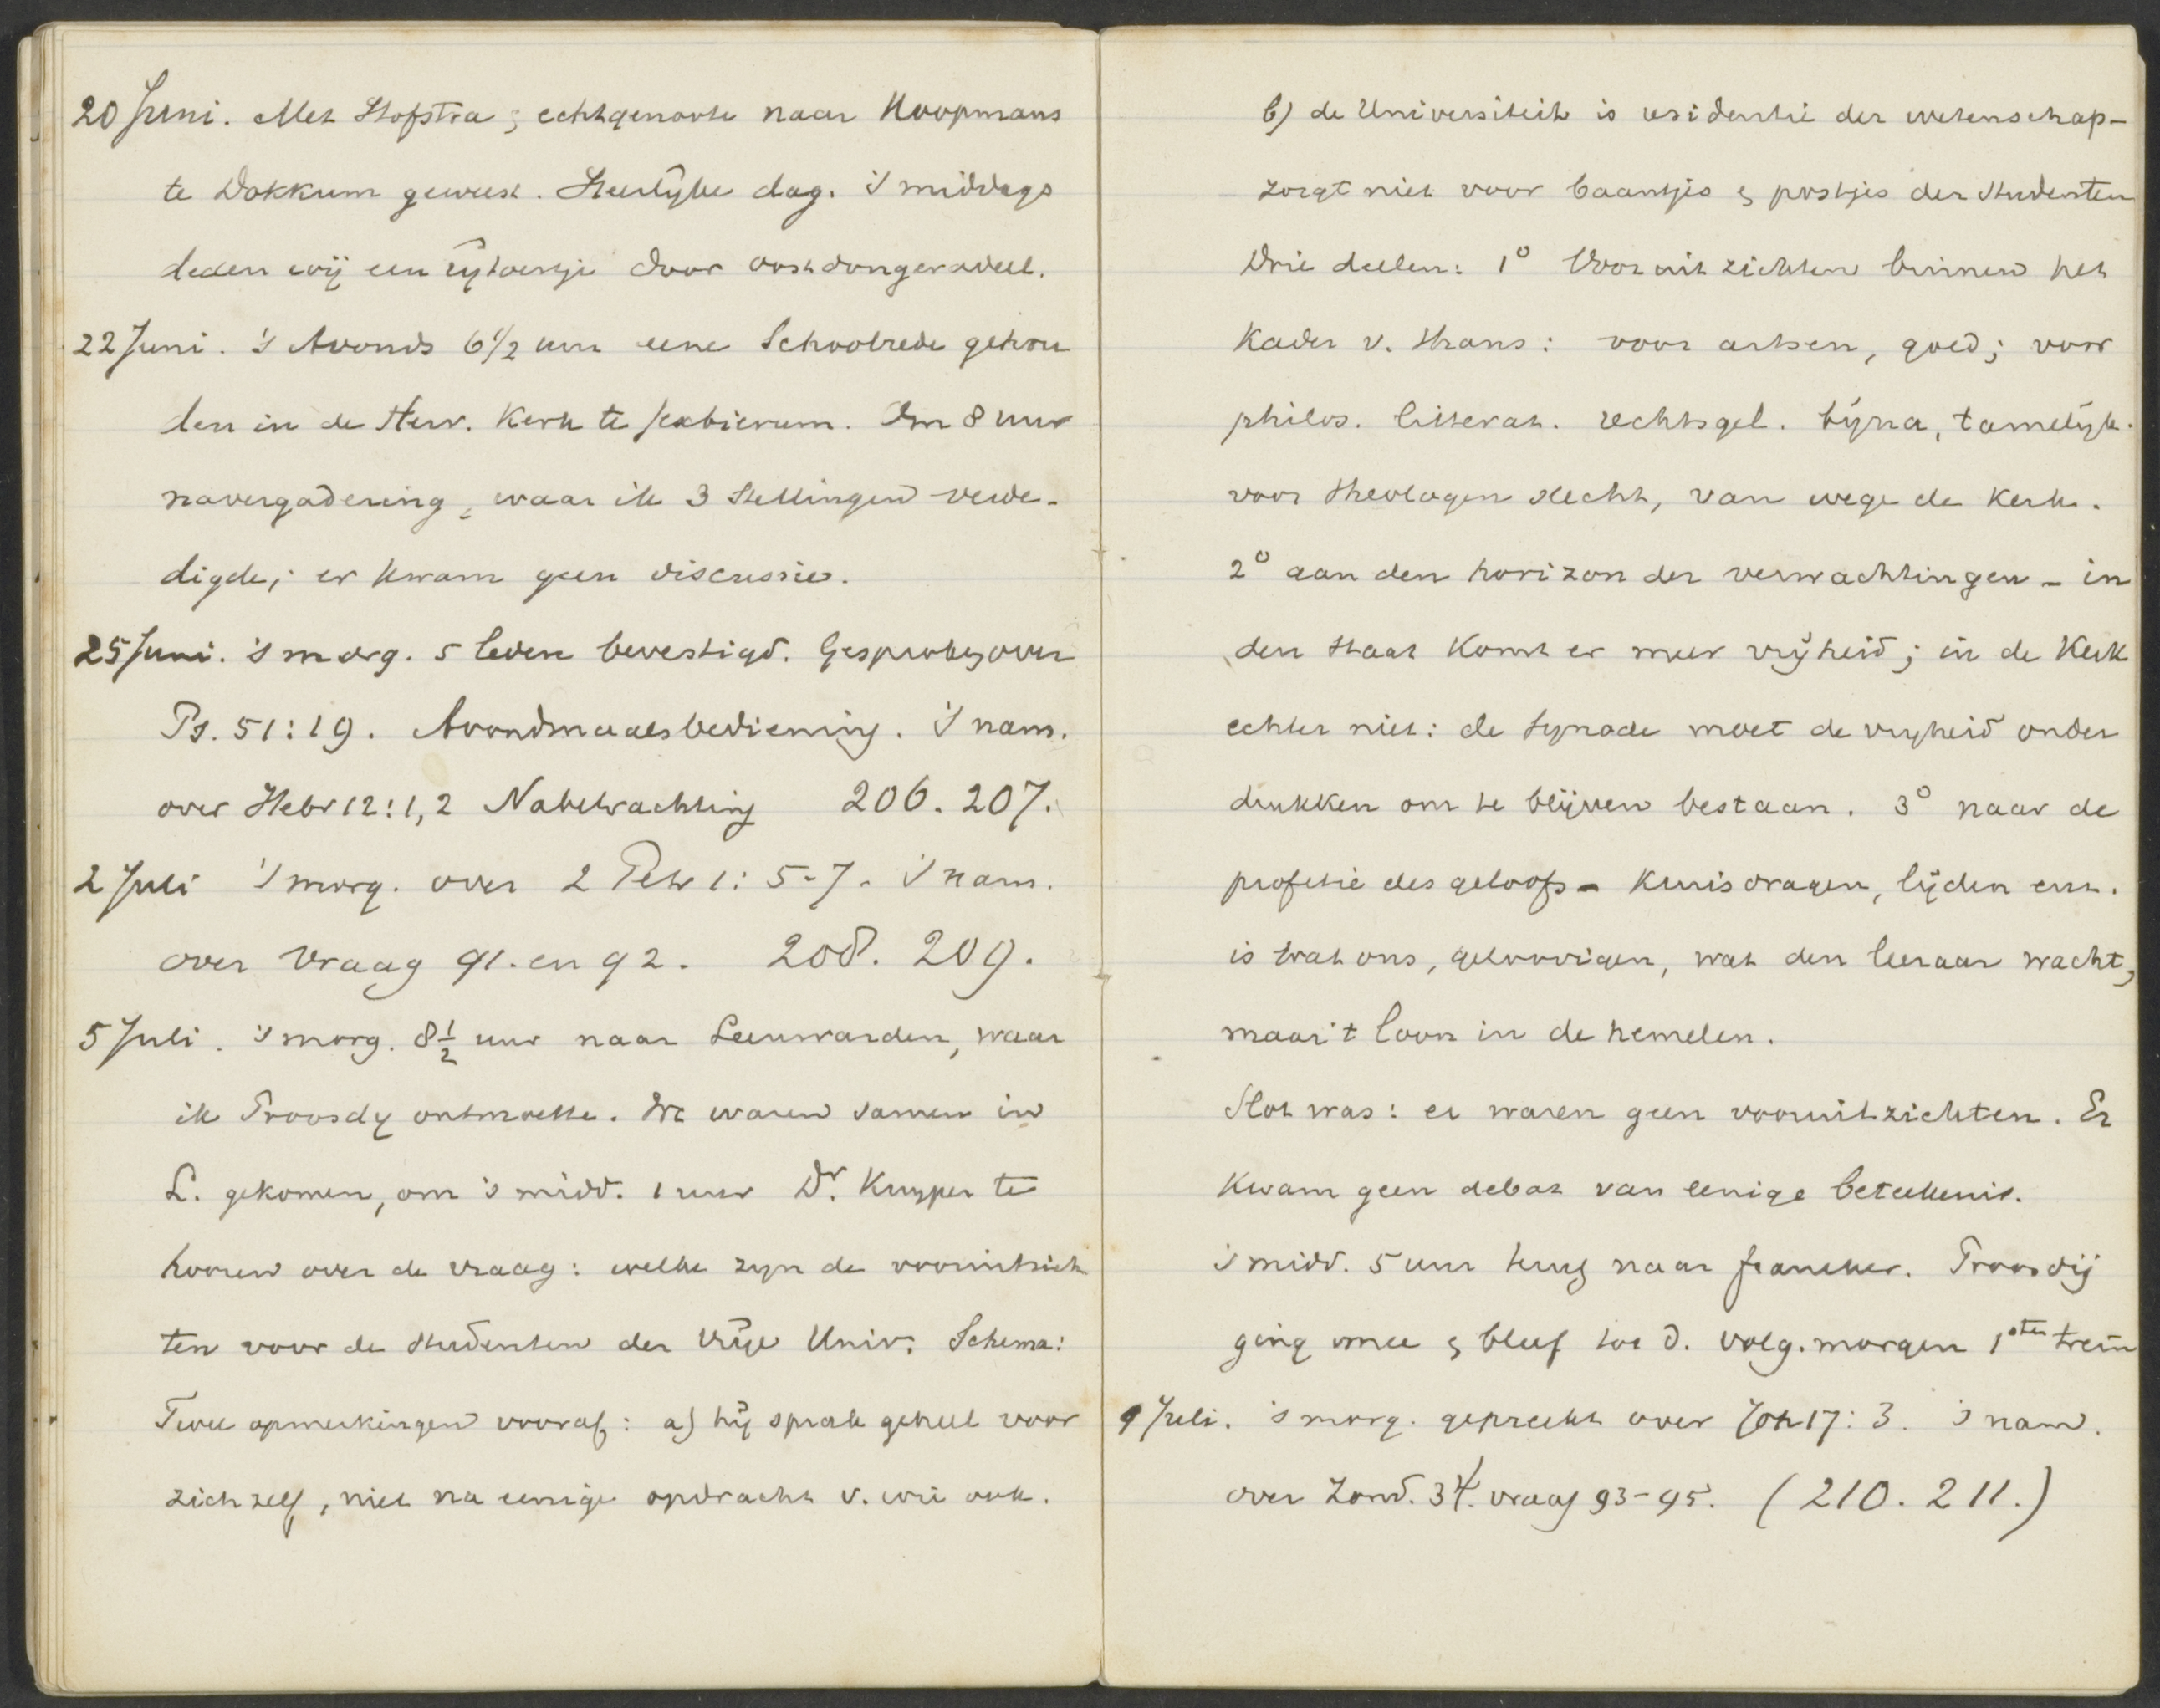 20 Juni. Met Hofstra & echtgenoote naar Koopmans
te Dokkum geweest. Heerlijke dag. 's middags
deden wij een rijtoertje door Oostdongeradeel.
22 Juni. 's Avonds 6 1/2 uur eene Schoolrede gehou
den in de Herv. Kerk te Sexbierum. Om 8 uur
navergadering, waar ik 3 Stellingen verde-
digde; er kwam geen discussie.
25 Juni. 's morg. 5 leden bevestigd. Gesproken over
Ps. 51:19. Avondmaalsbediening. 's nam.
over Hebr 12:1,2 Nabetrachting 206. 207.
2 Juli 's morg. over 2 Petr 1: 5-7. 's nam.
over Vraag 91. en 92. 208. 209.
5 Juli. 's morg. 8 1/2 uur naar Leeuwarden, waar
ik Troosdy ontmoette. We waren samen in
L. gekomen, om 's midd. 1 uur Dr. Kuyper te
hooren over de vraag: welke zijn de vooruitzich
ten voor de studenten der Vrije Univ. Schema:
Twee opmerkingen vooraf: a) hij sprak geheel voor
zichzelf, niet na eenige opdracht v. wie ook.
b) de Universiteit is residentie der wetenschap-
zorgt niet voor baantjes & postjes der studenten
Drie deelen: 1° Vooruitzichten binnen het
Kader v. thans: voor artsen, goed; voor
philos. litterat. rechtsgel. bijna, tamelijk.
voor theologen slecht, van wege de Kerk.
2° aan den horizon der verwachtingen - in
den staat komt er meer vrijheid; in de Kerk
echter niet: de Synode moet de vrijheid onder
drukken om te blijven bestaan. 3° naar de
profetie des geloofs - Kruisdragen, lijden enz.
is wat ons, geloovigen, wat den leeraar wacht,
maar 't loon in de hemelen.
Slot was: er waren geen vooruitzichten. Er
Kwam geen debat van eenige beteekenis.
's midd. 5 uur terug naar Franeker. Troosdij
ging mee & bleef tot d. volg. morgen 1sten trein
9 Juli. 's morg. gepreekt over Joh 17: 3. 's nam.
over Zond. 34. vraag 93-95. (210. 211.)